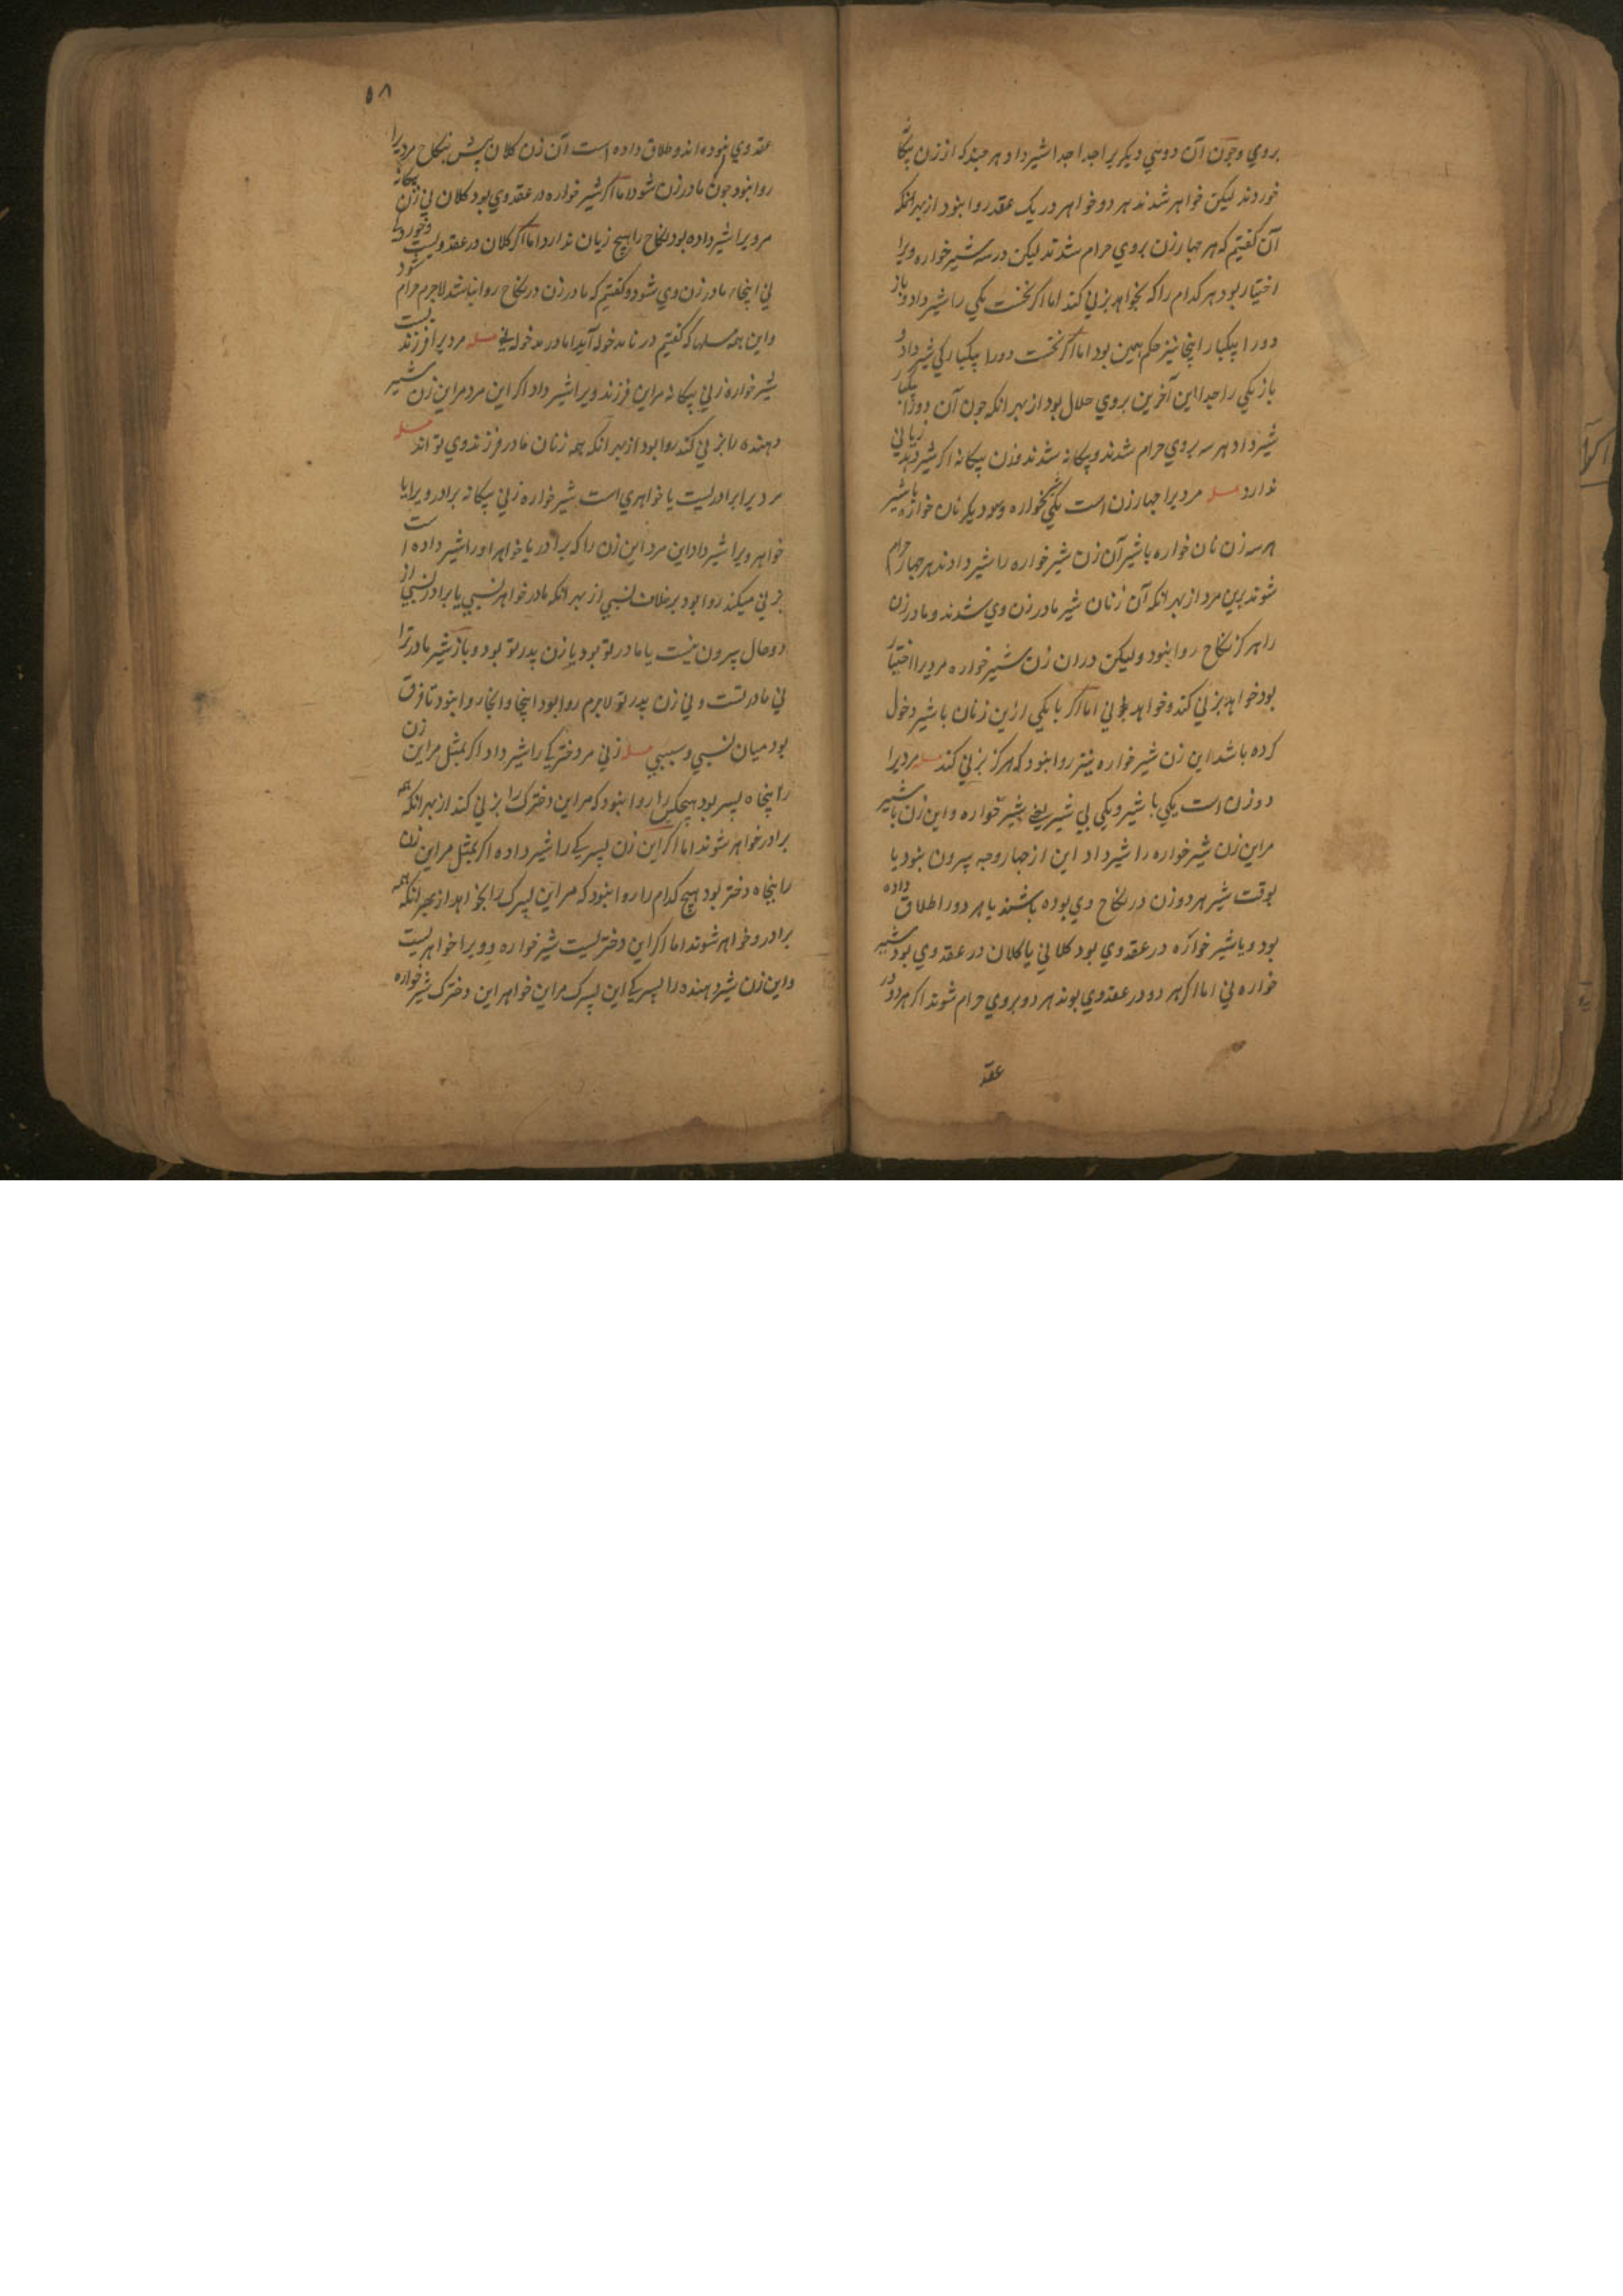 بروي وچون آن دوسي ديكر يرا جدا جدا شير داد هر چند كه از زن بيكانه
خوردند ليكن خواهر شدند هر دو خواهر در يك عقد روا نبود از بهر انكه
آن كفتيم كه هر چهار زن بروي حرام شدند ليكن در سه شير خواره ويرا
اختيار بود هر كدام را كه بخواهد بزني كند اما اكر نخست يكي را شير داد و باز
دو را بيكبار اينجا نيز حكم همين بود اما اكر نخست دو را بيكباركي شير داد و
باز يكي را جدا اين آخرين بروي حلال بود از بهر انكه چون آن دو را بيكبار
شير داد هر سه بروي حرام شدند و بيكانه شدند و زن بيكانه اكر شير دهد زياني
ندارد مسله مرديرا چهار زن است يكي شيرخواره و سه ديكر نان خواره با شير
هر سه زن نان خواره با شير آن زن شير خواره را شير دادند هر چهار حرام
شوند برين مرد از بهر انكه آن زنان شير مادر زن وي شدند و مادر زن
را هركز نكاح روا نبود وليكن دران زن شير خواره مرديرا اختيار
بود خواهد بزني كند و خواهد ني اما اكر با يكي ازين زنان با شير دخول
كرده باشد اين زن شير خواره نيز روا نبود كه هركز بزني كند مسله مرديرا
دو زن است يكي با شير و يكي بي شير يعني شير خواره و اين زن با شير
مر اين زن شير خواره را شير داد اين از چهار وجه بيرون نبود يا
بوقت شير هر دو زن در نكاح وي بوده باشند يا هر دو را طلاق داده
بود و يا شير خواره در عقد وي بود كلاني يا كلان در عقد وي بود شير
خواره ني اما اكر هر دو در عقد وي بوند هر دو بروي حرام شوند اكر هر دو در
عقد
۵۸
عقد وي نبوده اند و طلاق داده است آن زن كلان پيش بنكاح مرديرا
روا نبود چون مادر زن شود اما اكر شير خواره در عقد وي بود كلان ني زن بيكانه
مر ويرا شير داده بود نكاح را هيچ زيان ندارد اما اكر كلان در عقد ويست و خورد
ني اينجا مادر زن وي شود و كفتيم كه مادر زن در نكاح روا نباشد لاجرم حرام شود
و اين همه مسلها كه كفتيم در نا مدخوله آيد اما در مدخوله ني مسله مرديرا فرزنديست
شير خواره زني بيكانه مر اين فرزند ويرا شير داد اكر اين مرد مر اين زن شير
دهنده را بزني كند روا بود از بهر انكه همه زنان مادر فرزند وي تواند مسله
مرديرا برادريست يا خواهري است شير خواره زني بيكانه برادر ويرا يا
خواهر ويرا شير داد اين مرد اين زن را كه برادر يا خواهر او را شير داده است
بزني ميكند روا بود بر خلاف نسبي از بهر انكه مادر خواهر نسبي يا برادر نسبي از
دو حال بيرون نيست يا مادر تو بود يا زن پدر تو بود و باز شير مادر ترا
ني مادر تست و ني زن پدر تو لاجرم روا بود اينجا و انجا روا نبود تا فرق
بود ميان نسبي و سببي مسله زني مر دختركي را شير داد اكر بمثل مر اين زن
را پنجاه پسر بود هيچكس را روا نبود كه مر اين دخترك را بزني كند از بهر انكه همه
برادر خواهر شوند اما اكر اين زن پسركي را شير داده اكر بمثل مر اين زن
را پنجاه دختر بود هيچ كدام را روا نبود كه مر اين پسرك را بخواهد از بهر انكه همه
برادر و خواهر شوند اما اكر اين دختريست شير خواره و ويرا خواهريست
و اين زن شير دهنده را پسريكي اين پسرك مر اين خواهر اين دخترك شير خواره